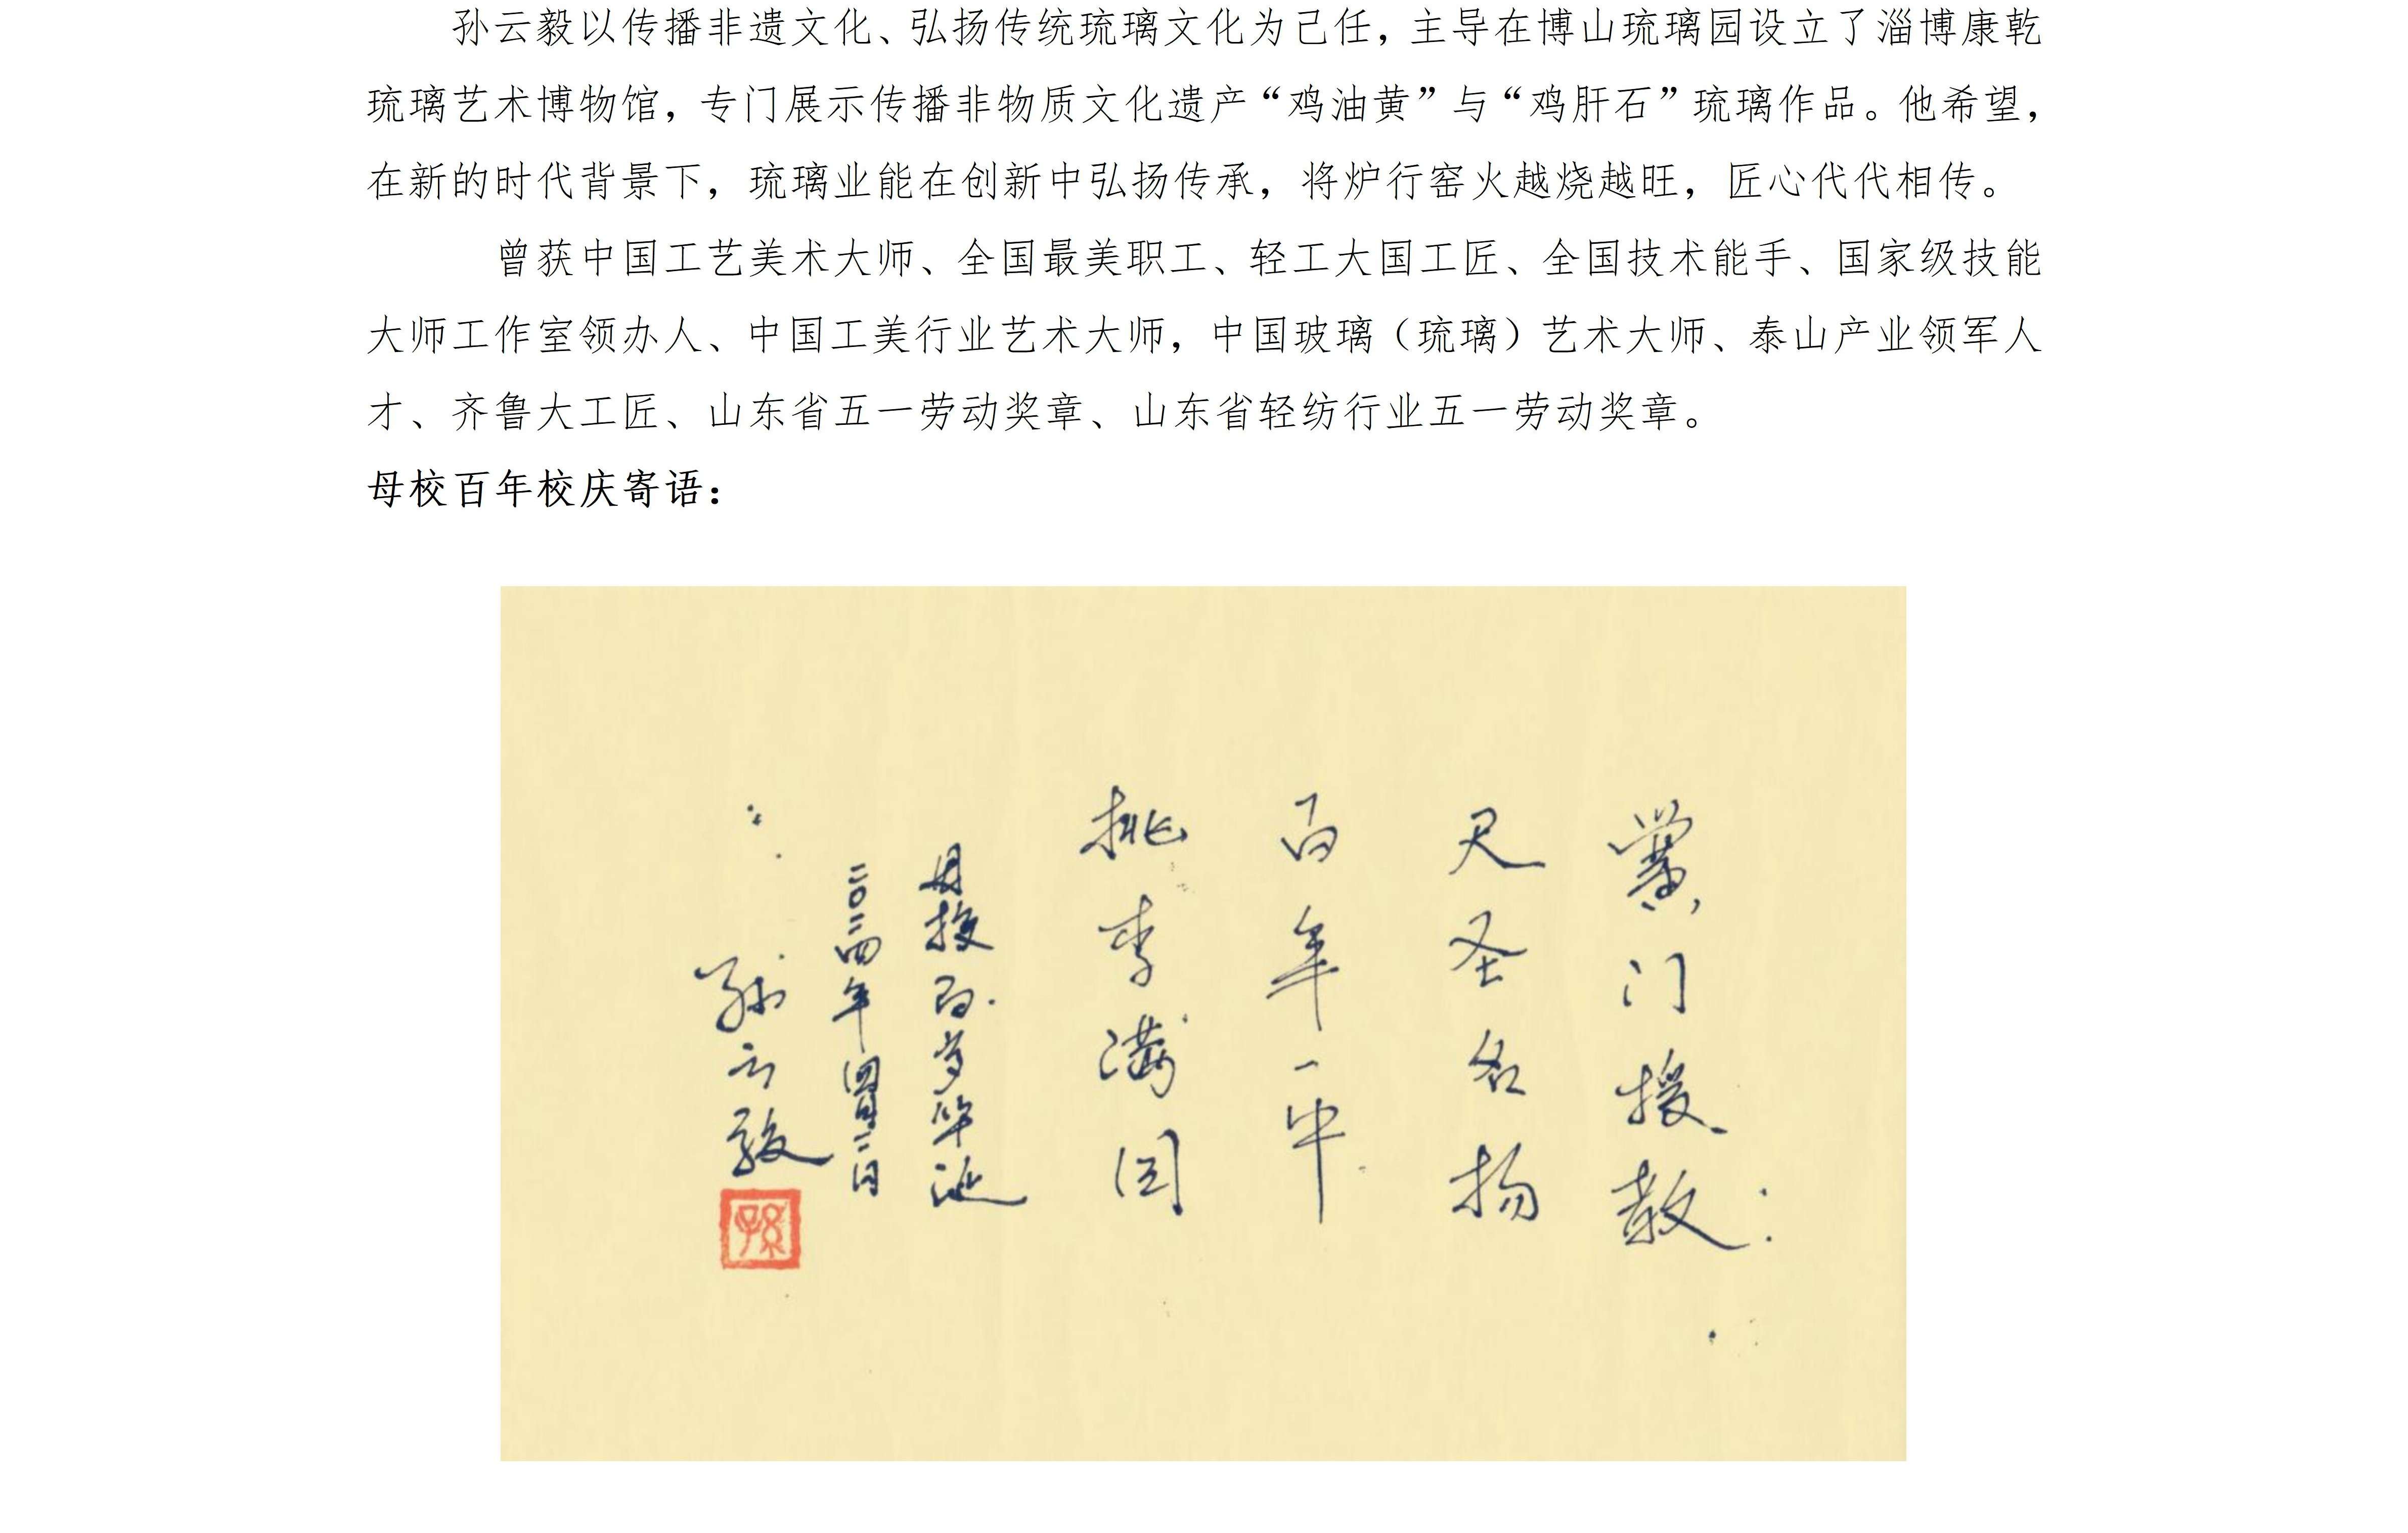 孙云毅以传播非遗文化、弘扬传统琉璃文化为己任，主导在博山琉璃园设立了淄博康乾
琉璃艺术博物馆，专门展示传播非物质文化遗产“鸡油黄”与“鸡肝石”琉璃作品。他希望，
在新的时代背景下，琉璃业能在创新中弘扬传承，将炉行窑火越烧越旺，匠心代代相传。
曾获中国工艺美术大师、全国最美职工、轻工大国工匠、全国技术能手、国家级技能
大师工作室领办人、中国工美行业艺术大师，中国玻璃（琉璃）艺术大师、泰山产业领军人
才、齐鲁大工匠、山东省五一劳动奖章、山东省轻纺行业五一劳动奖章。
母校百年校庆寄语：
黉门授教
圣名扬
百年一中
桃李满园
母校百岁华诞
二〇二四年四月二日
孙云毅
孫